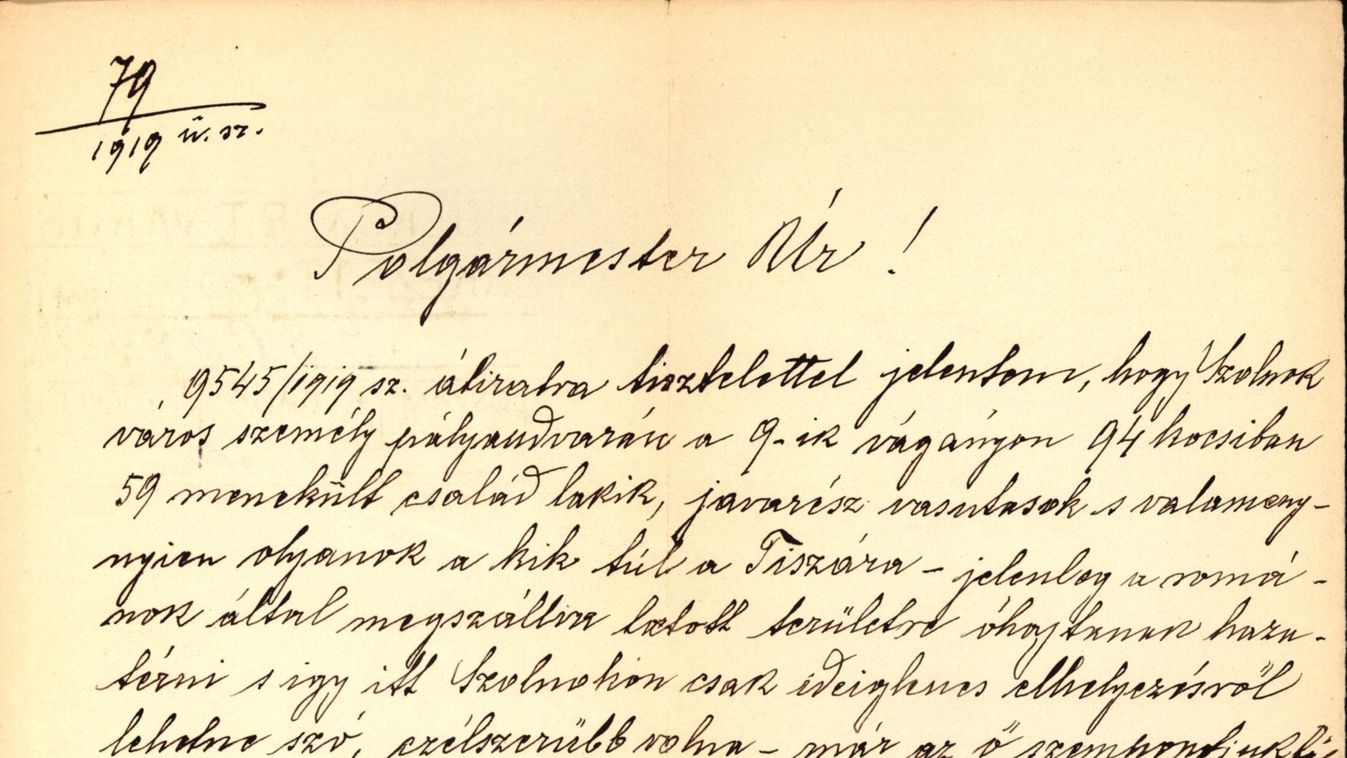 79
1919 ü. sz.
Polgármester Úr!
9545/1919 sz. átiratra tisztelettel jelentem, hogy Szolnok
város személy pályaudvarán a 9-ik vágányon 94 kocsiban
59 menekült család lakik, javarész vasutasok s valameny-
nyien olyanok a kik túl a Tiszára - jelenleg a romá-
nok által megszállva tartott területre óhajtanak haza-
térni s igy itt Szolnokon csak ideiglenes elhelyezésről
lehetne szó, czélszerübb volna - már az ő